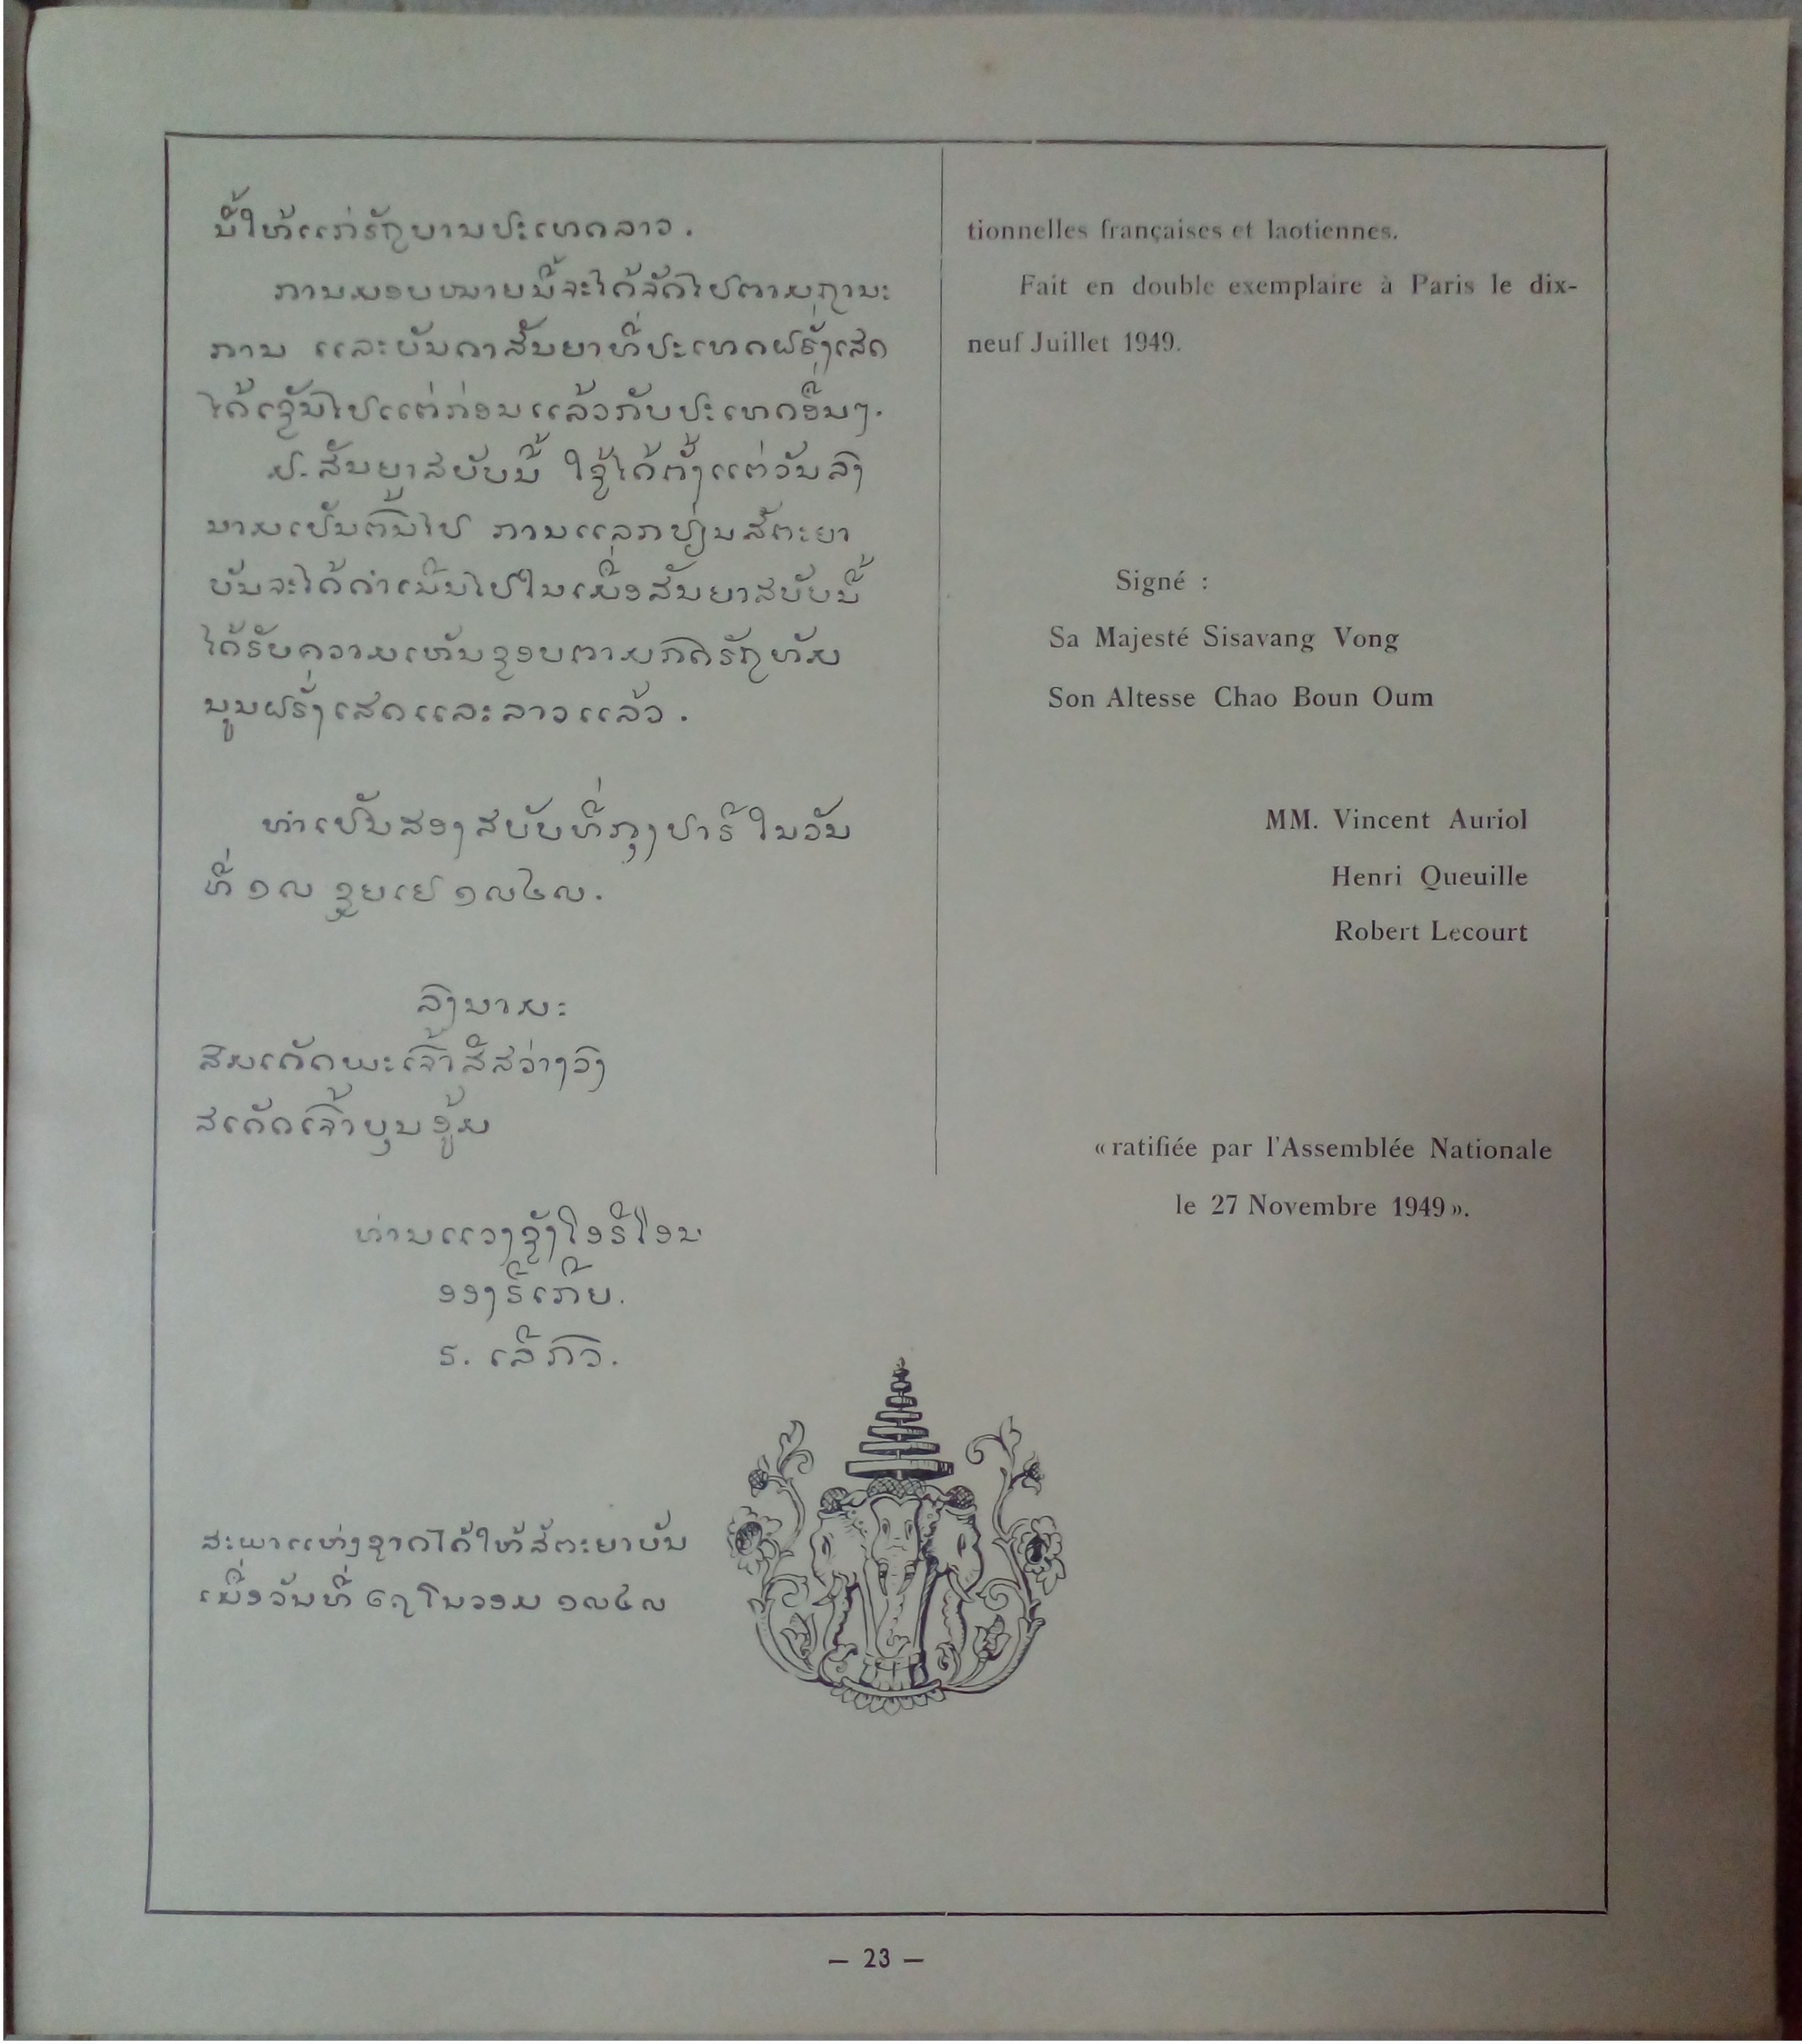 ນີ້ໃຫ້ແກ່ຣັຖບານປະເທດລາວ.
ການມອບໝາຍນີ້ຈະໄດ້ຈັດໄປຕາມຖານະ
ການ ແລະບັນດາສັນຍາທີ່ປະເທດຝຣັ່ງເສດ
ໄດ້ເຊັນໄປແຕ່ກ່ອນແລ້ວກັບປະເທດອື່ນໆ.
ປ. ສັນຍາສບັບນີ້ ໃຊ້ໄດ້ຕັ້ງແຕ່ວັນລົງ
ນາມເປັນຕົ້ນໄປ ການແລກປ່ຽນສັຕະຍາ
ບັນຈະໄດ້ດຳເນີນໄປໃນເມື່ອສັນຍາສບັບນີ້
ໄດ້ຮັບຄວາມເຫັນຊອບຕາມກົດຣັຖທັມ
ນູນຝຣັ່ງເສດແລະລາວແລ້ວ.
ທຳເປັນສອງສບັບທີ່ກຸງປາຣີ ໃນວັນ
ທີ່ ໑໙ ຊູຍເຢ ໑໙໔໙.
ລົງນາມ:
ສົມເດັດພະເຈົ້າສີສວ່າງວົງ
ສເດັດເຈົ້າບຸນອູ້ມ
ທ່ານແວງຊັງໂອຣິໂອນ
ອອງຣີເກີຍ.
ຣ. ເລີກົວ.
ສະພາແຫ່ງຊາດໄດ້ໃຫ້ສັຕະຍາບັນ
ເມື່ອວັນທີ່ ໒໗ ໂນວອມ ໑໙໔໙
tionnelles françaises et laotiennes.
Fait en double exemplaire à Paris le dix-
neuf Juillet 1949.
Signé :
Sa Majesté Sisavang Vong
Son Altesse Chao Boun Oum
MM. Vincent Auriol
Henri Queuille
Robert Lecourt
« ratifiée par l'Assemblée Nationale
le 27 Novembre 1949 ».
— 23 —